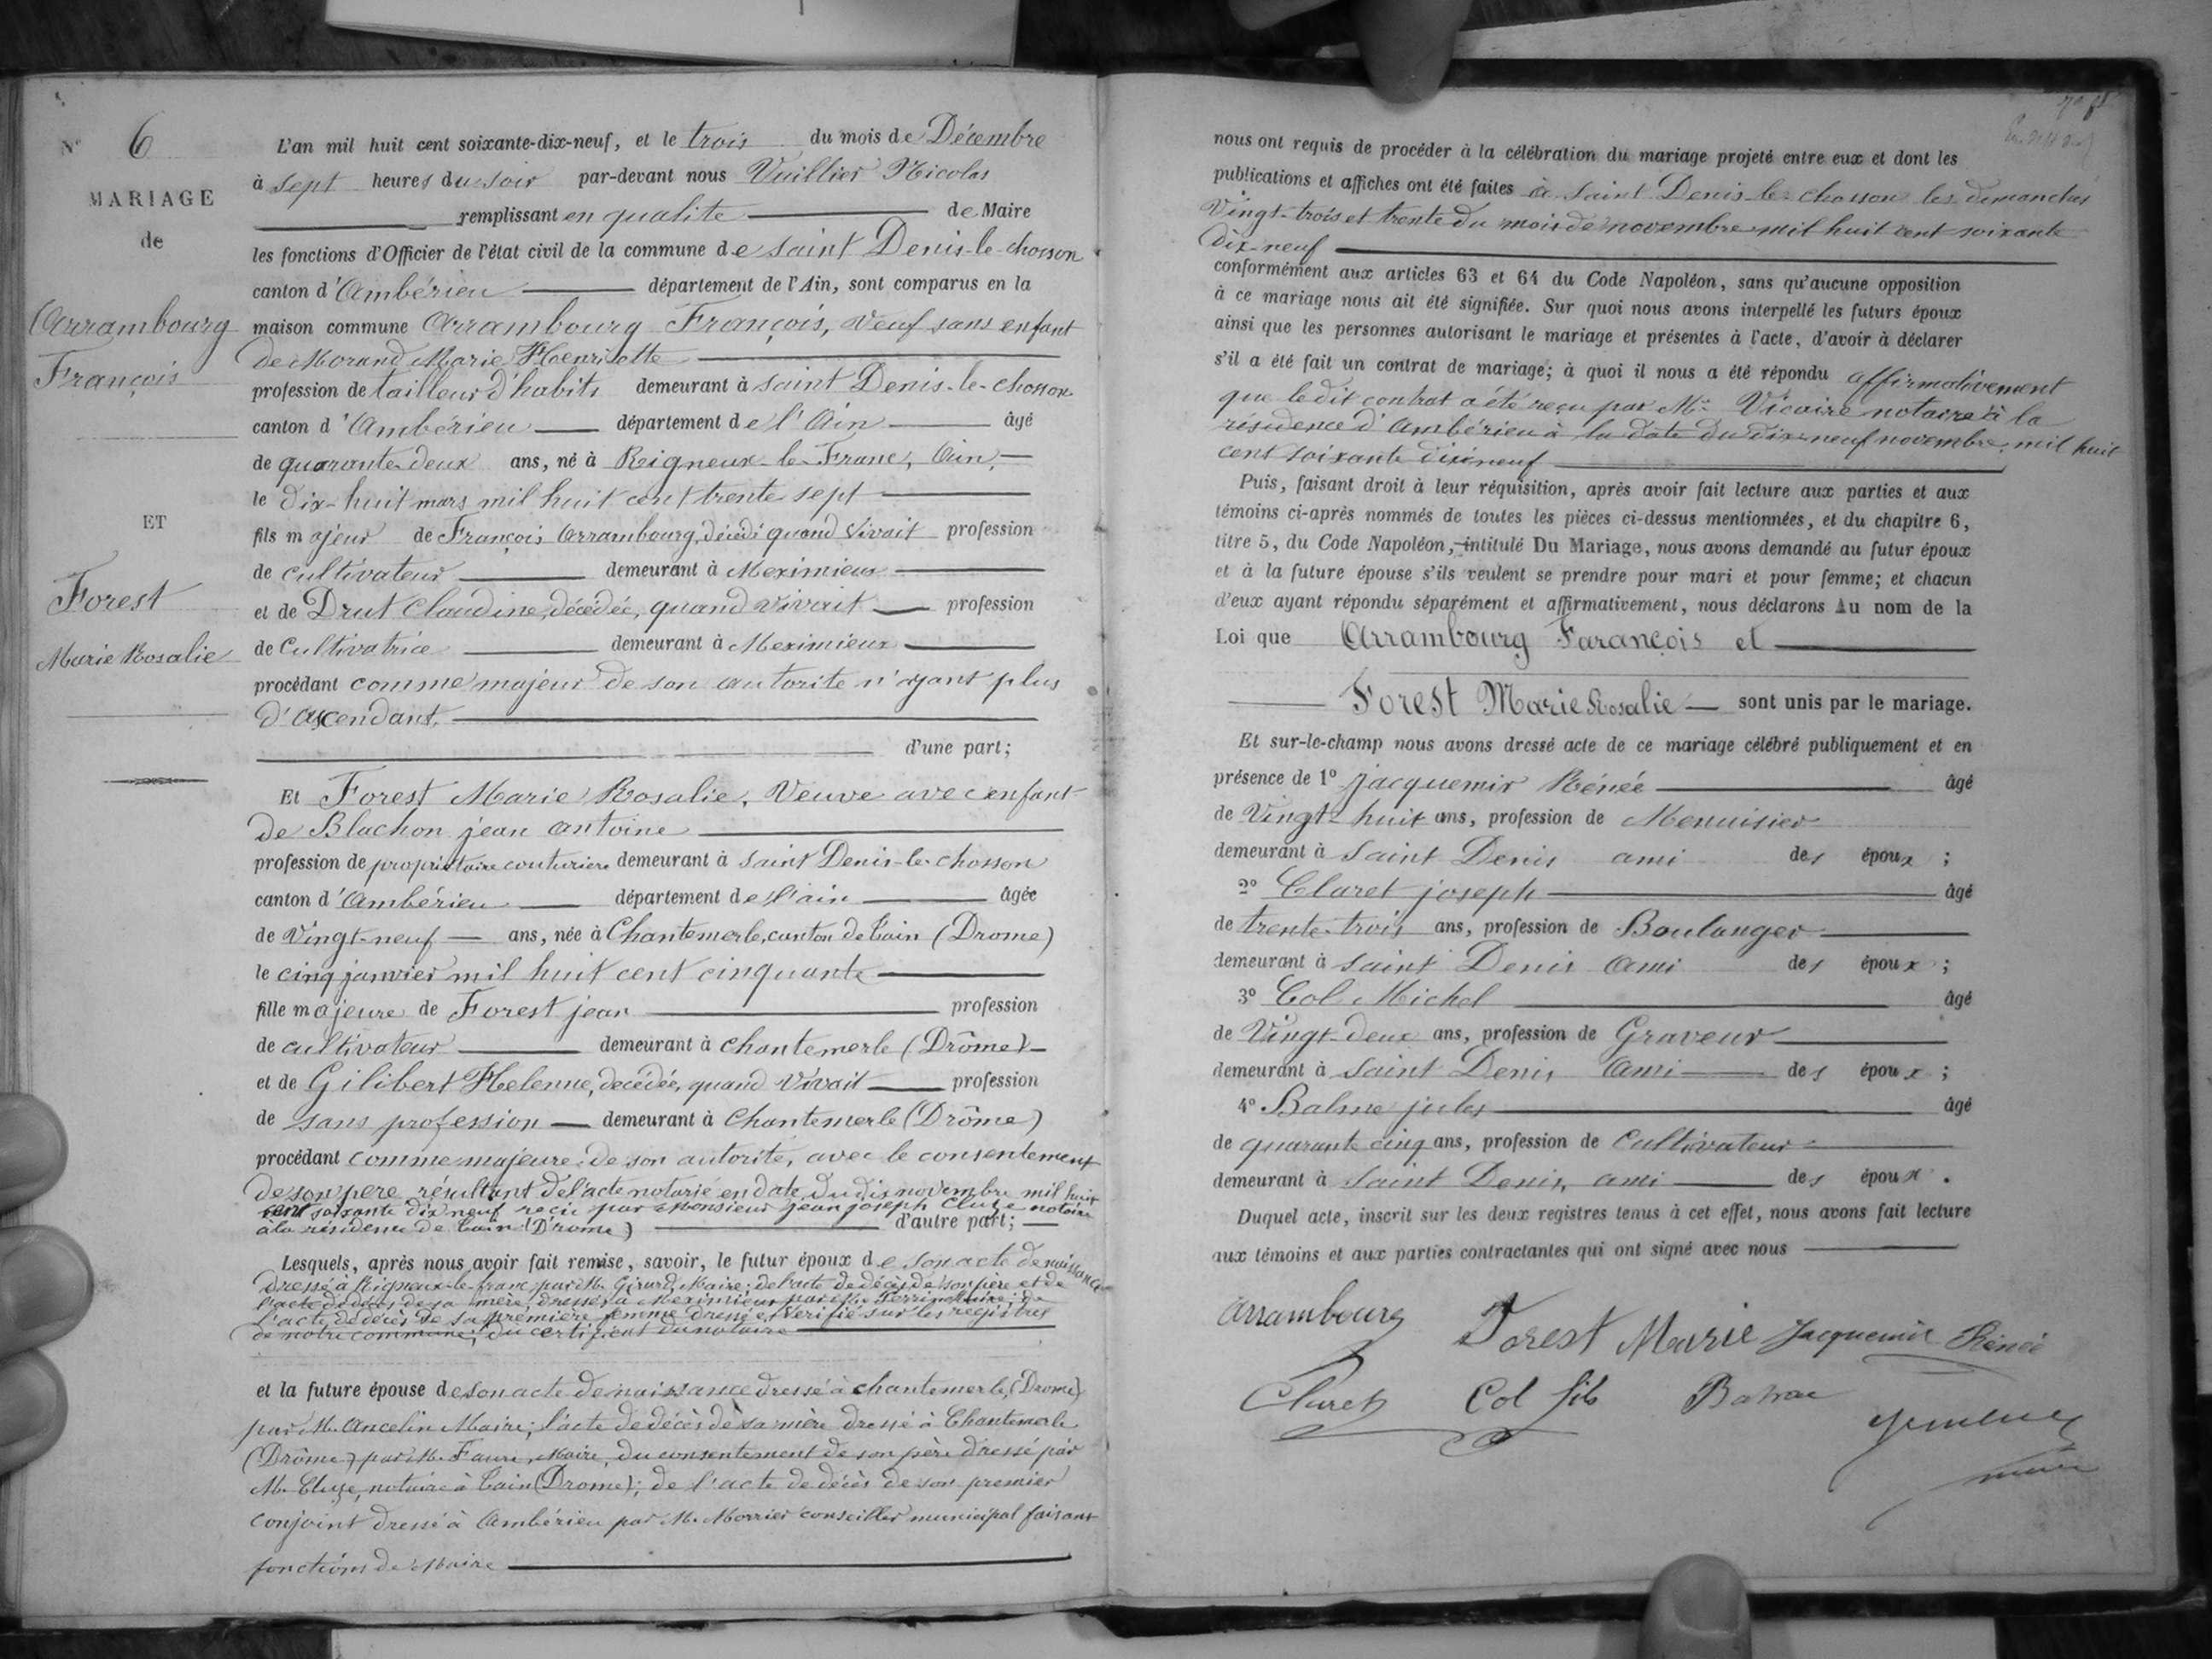 N° 6
MARIAGE
de
Arrambourg
François
ET
Forest
Marie Rosalie
L'an mil huit cent soixante-dix-neuf, et le trois du mois de Décembre
à sept heures du soir par-devant nous Vuillier Nicolas
remplissant en qualite de Maire
les fonctions d'Officier de l'état civil de la commune de saint Denis-le-chosson
canton d'Ambérieu département de l'Ain, sont comparus en la
maison commune Arrambourg François, veuf sans enfant
de Morand Marie Henriette
profession de tailleur d'habits demeurant à saint Denis-le-chosson
canton d'Ambérieu département de l'Ain âgé
de quarante-deux ans, né à Rigneux-le-Franc, Ain,
le dix-huit mars mil huit cent trente sept
fils majeur de François Arrambourg, décédé quand vivait profession
de cultivateur demeurant à Meximieux
et de Drut Claudine, décédée, quand vivait profession
de Cultivatrice demeurant à Meximieux
procédant comme majeur de son autorite n'ayant plus
d'ascendant.
d'une part;
Et Forest Marie Rosalie, Veuve avec enfant
de Blachon jean antoine
profession de propriétaire couturiere demeurant à saint Denis-le-chosson
canton d'Ambérieu département de l'ain âgée
de Vingt-neuf ans, née à Chantemerle, canton de Tain (Drome)
le cinq janvier mil huit cent cinquante
fille majeure de Forest jean profession
de cultivateur demeurant à chantemerle (Drôme)
et de Gilibert Helenne, decédée, quand vivait profession
de sans profession demeurant à Chantemerle (Drôme)
procédant comme majeure de son autorité, avec le consentement
de son père résultant de l'acte notarié en date du dix novembre mil huit
cent soixante dix neuf reçu par Monsieur jean joseph Cluze notaire
à la résidence de Tain (Drome) d'autre part;
Lesquels, après nous avoir fait remise, savoir, le futur époux de son acte de naissance
dressé à Rigneux-le-franc par M. Girard, Maire; de l'acte de décès de son père et de
l'acte de décès de sa mère, dressés à Meximieux par M. Perrin Maire; de
l'acte de décès de sa première femme dressé et vérifié sur les registres
de notre commune; du certificat du notaire
et la future épouse de son acte de naissance dressé à chantemerle, (Drome)
par M. Ancelin Maire; l'acte de décès de sa mère dressé à Chantemerle
(Drôme) par M. Faure, Maire, du consentement de son père dressé par
M. Cluze, notaire à Tain (Drome); de l'acte de décès de son premier
conjoint dressé à Ambérieu par M. Morrier conseiller municipal faisant
fonctions de Maire
nous ont requis de procéder à la célébration du mariage projeté entre eux et dont les
publications et affiches ont été faites à Saint Denis-le-chosson les dimanches
Vingt-trois et trente du mois de novembre mil huit cent soixante
Dix-neuf
conformément aux articles 63 et 64 du Code Napoléon, sans qu'aucune opposition
à ce mariage nous ait été signifiée. Sur quoi nous avons interpellé les futurs époux
ainsi que les personnes autorisant le mariage et présentes à l'acte, d'avoir à déclarer
s'il a été fait un contrat de mariage; à quoi il nous a été répondu affirmativement
que ledit contrat a été reçu par Me Vicaire notaire à la
résidence d'Ambérieu à la date du dix-neuf novembre mil huit
cent soixante dix neuf
Puis, faisant droit à leur réquisition, après avoir fait lecture aux parties et aux
témoins ci-après nommés de toutes les pièces ci-dessus mentionnées, et du chapitre 6,
titre 5, du Code Napoléon, intitulé Du Mariage, nous avons demandé au futur époux
et à la future épouse s'ils veulent se prendre pour mari et pour femme; et chacun
d'eux ayant répondu séparément et affirmativement, nous déclarons Au nom de la
Loi que Arrambourg Farançois et
Forest Marie Rosalie sont unis par le mariage.
Et sur-le-champ nous avons dressé acte de ce mariage célébré publiquement et en
présence de 1° jacquemir Rénée âgé
de Vingt-huit ans, profession de Menuisier
demeurant à Saint Denis ami des époux ;
2° Claret joseph âgé
de trente-trois ans, profession de Boulanger
demeurant à saint Denis Ami des époux ;
3° Col Michel âgé
de Vingt-deux ans, profession de Graveur
demeurant à saint Denis Ami des époux ;
4° Balme jules âgé
de quarante cinq ans, profession de Cultivateur
demeurant à saint Denis, ami des époux .
Duquel acte, inscrit sur les deux registres tenus à cet effet, nous avons fait lecture
aux témoins et aux parties contractantes qui ont signé avec nous
Arrambourg
Forest Marie Jacquemir Rénée
Claret Col fils Balme